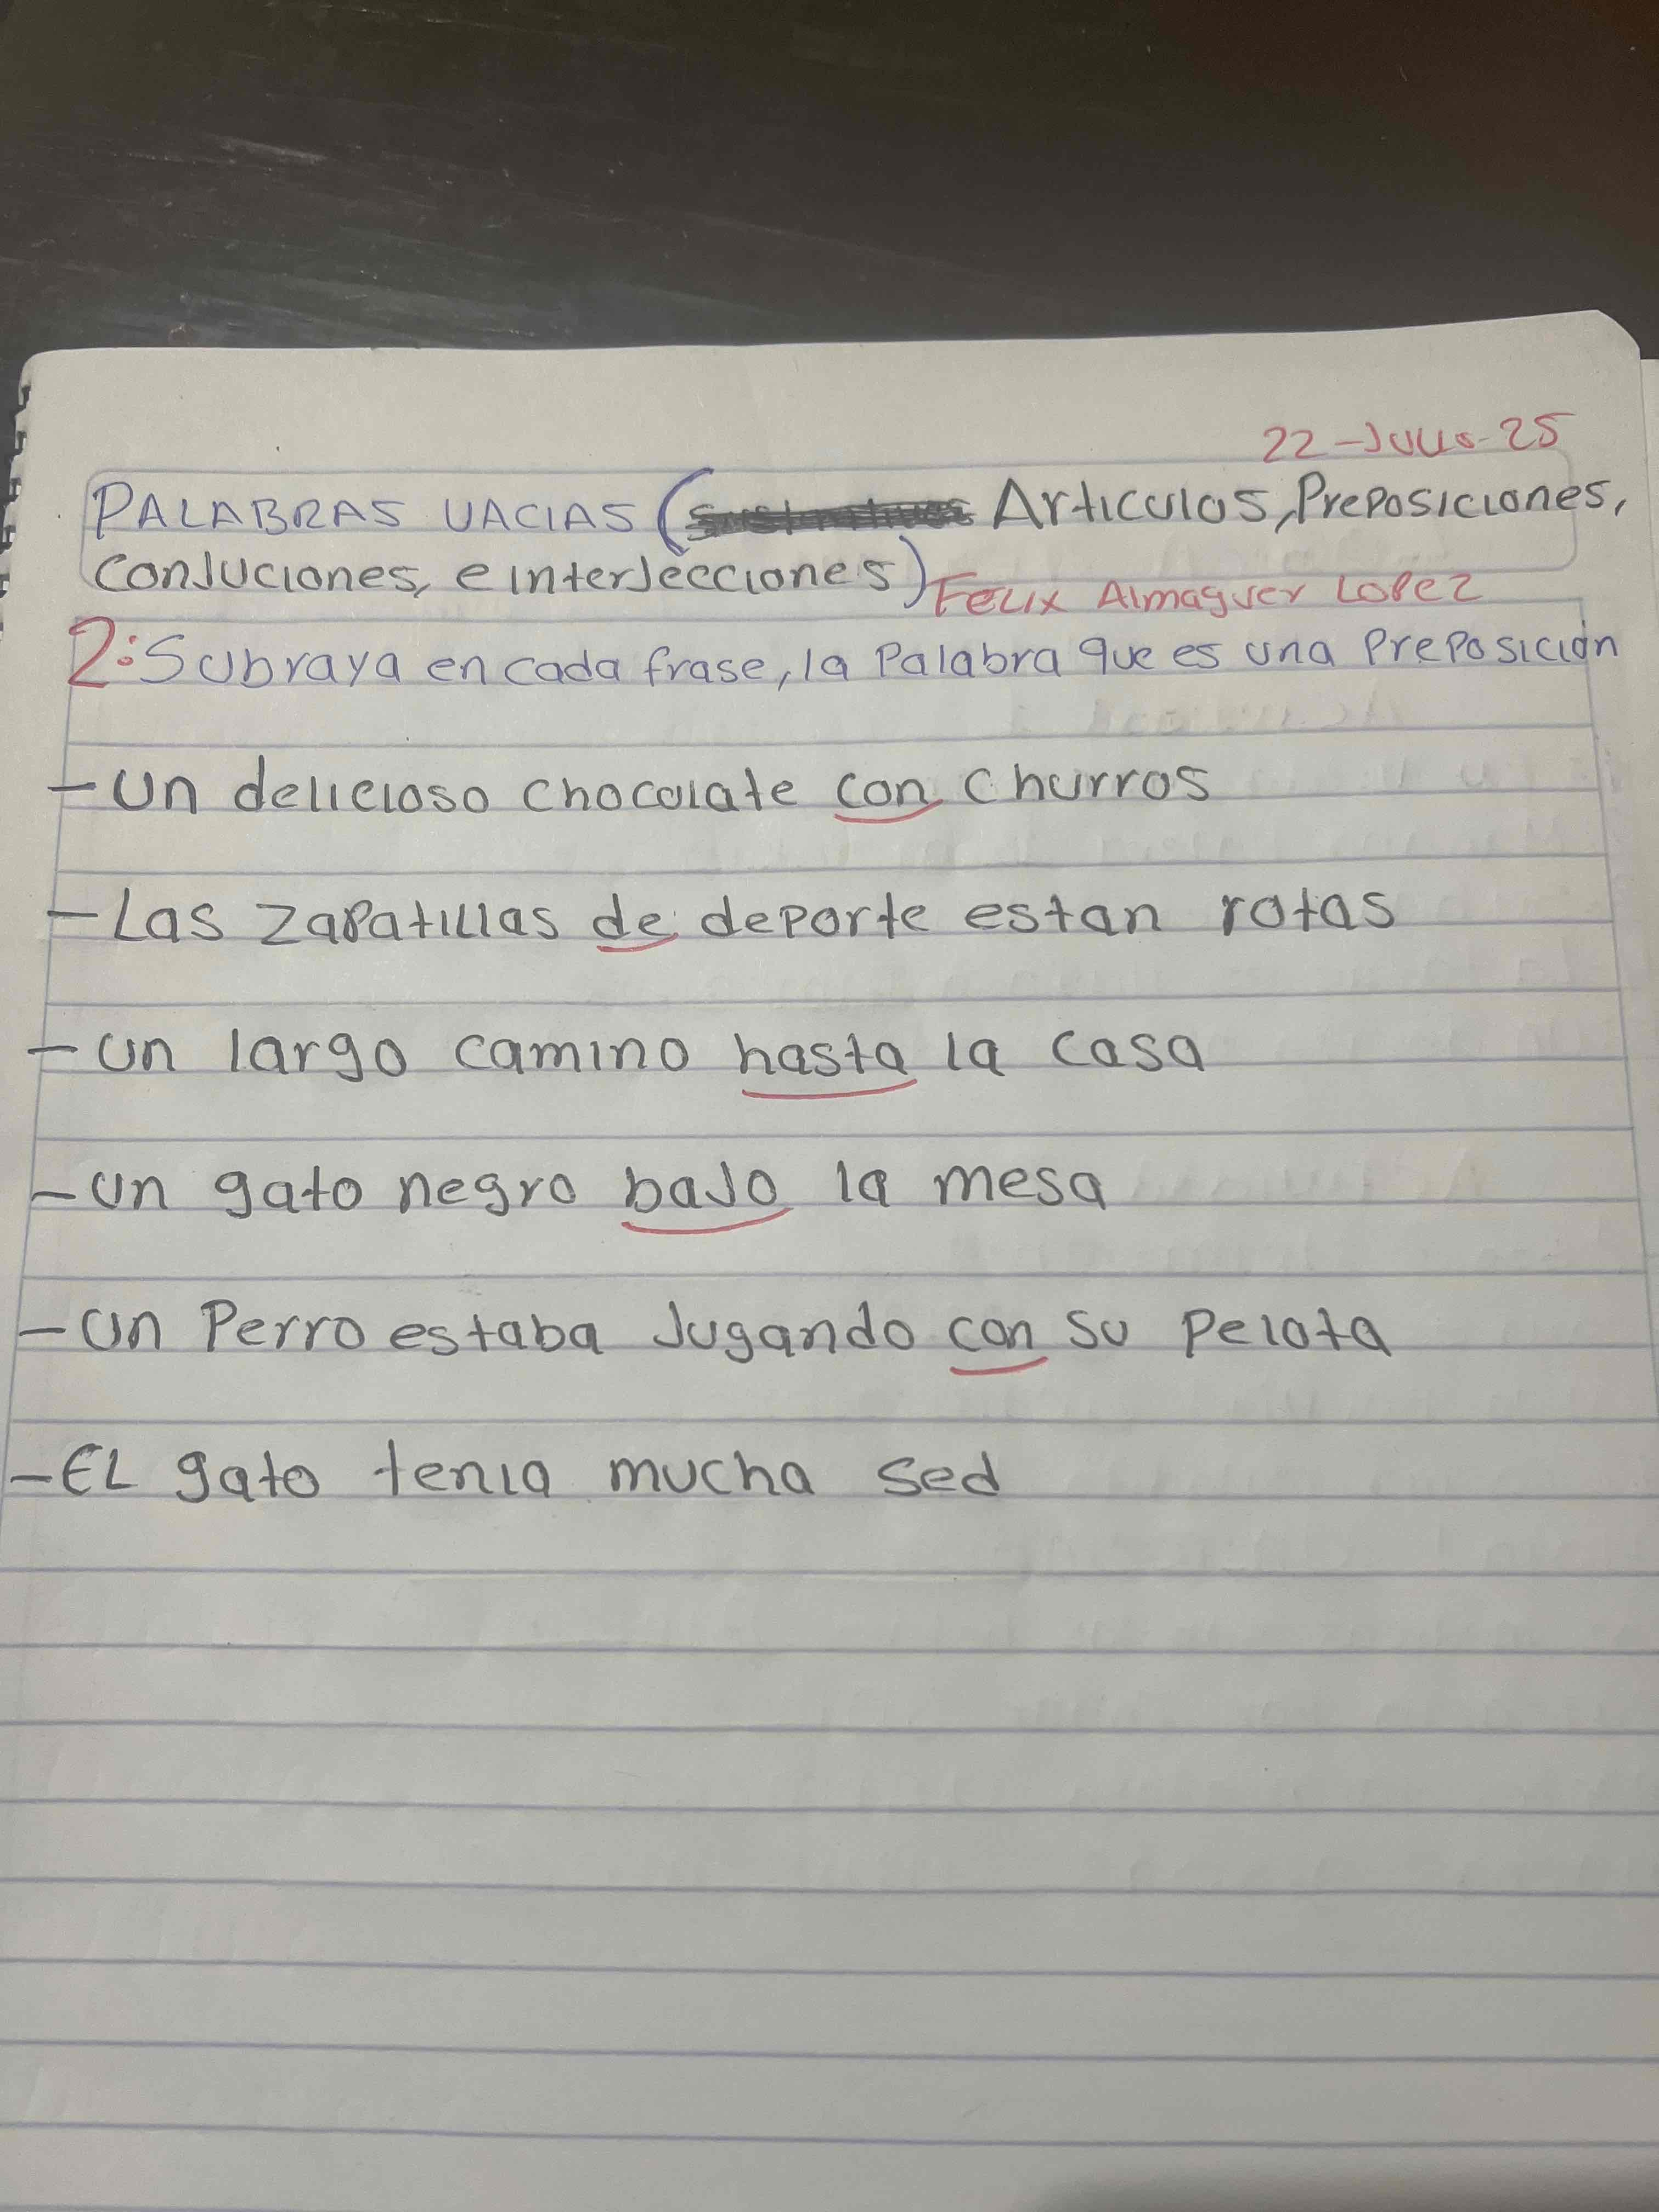 22-Julio-25
PALABRAS VACIAS (Articulos, Preposiciones,
Conjuciones, e interjecciones)
Felix Almaguer Lopez
2: Subraya en cada frase, la Palabra que es una Preposición
- Un delicioso chocolate con churros
- Las zapatillas de deporte estan rotas
- Un largo camino hasta la casa
- Un gato negro bajo la mesa
- Un Perro estaba Jugando con su Pelota
- EL gato tenia mucha sed